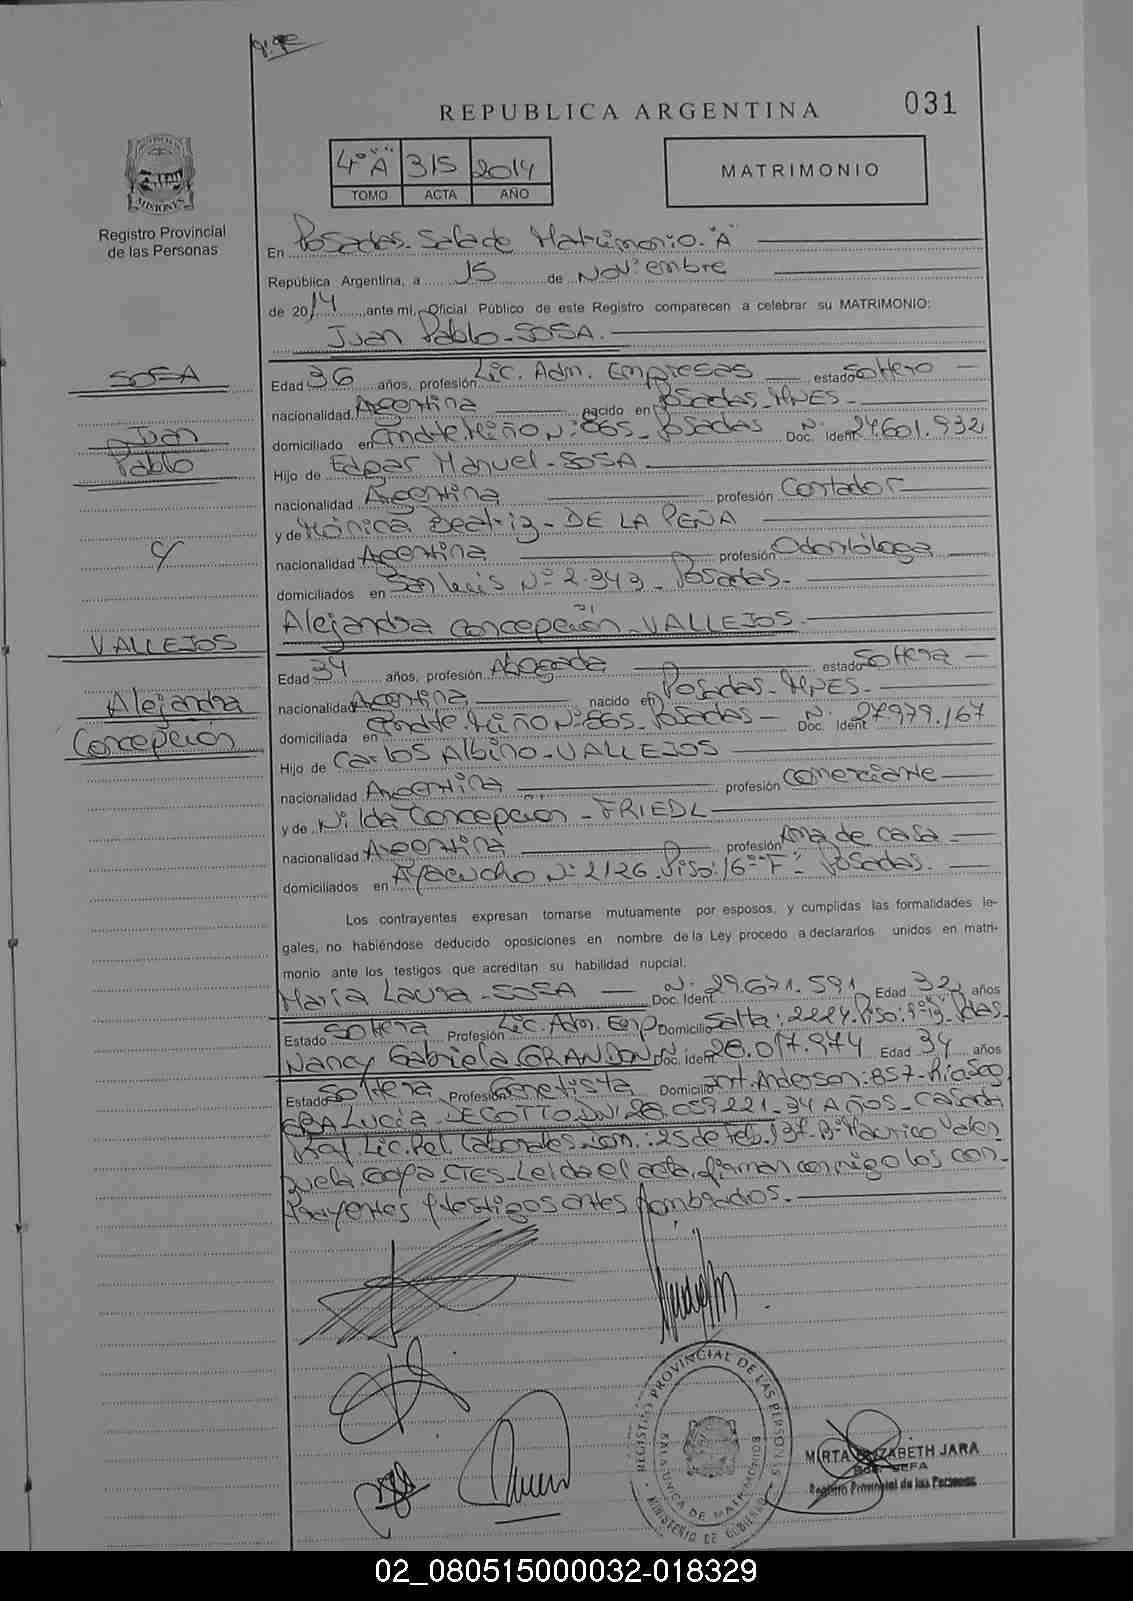 REPUBLICA ARGENTINA
031
4º "A" 315 2014
TOMO ACTA AÑO
MATRIMONIO
MISIONES
Registro Provincial
de las Personas
En Posadas. Sala de Matrimonio. "A"
República Argentina, a 15 de Noviembre
de 2014, ante mi, Oficial Público de este Registro comparecen a celebrar su MATRIMONIO:
Juan Pablo - SOSA.
SOSA
Juan
Pablo
Edad 36 años, profesión Lic. Adm. Empresas estado soltero
nacionalidad Argentina nacido en Posadas - MNES.
domiciliado en Nº 865 - Posadas Doc. Ident. Nº 24.601.932
Hijo de Edgar Manuel - SOSA.
nacionalidad Argentina profesión Contador
y de Mónica Beatriz - DE LA PEÑA
nacionalidad Argentina profesión Odontóloga
domiciliados en San Luis Nº 2.343 - Posadas.
Alejandra Concepción - VALLEJOS.
y
VALLEJOS
Alejandra
Concepción
Edad 34 años, profesión Abogada estado soltera
nacionalidad Argentina nacido en Posadas - MNES.
domiciliada en Nº 865 - Posadas Doc. Ident. Nº 27.979.167
Hijo de Carlos Albino - VALLEJOS
nacionalidad Argentina profesión comerciante
y de Nilda Concepción - FRIEDL
nacionalidad Argentina profesión Ama de casa
domiciliados en Ayacucho Nº 2126. Piso: 16º "F" - Posadas.
Los contrayentes expresan tomarse mutuamente por esposos, y cumplidas las formalidades le-
gales, no habiéndose deducido oposiciones en nombre de la Ley procedo a declararlos unidos en matri-
monio ante los testigos que acreditan su habilidad nupcial.
María Laura - SOSA Doc. Ident. Nº 29.671.591 Edad 32 años
Estado Soltera Profesión Lic. Adm. Emp Domicilio Salta: 2224. Piso: Pdas.
Nancy Gabriela GRANDON Doc. Ident. 28.017.974 Edad 34 años
Estado Soltera Profesión Genetista Domicilio Anderson: 857 - Río Seg.
ANA LUCÍA - DECOTTO DNI 28.059.221 - 34 AÑOS - Casada
Prof. Lic. Rel. Laborales - Dom.: 25 de Feb. 137. Bº Mauricio Valen
zuela. Goya - CTES - Leída el acta, firman conmigo los con-
trayentes y testigos antes nombrados.
REGISTRO PROVINCIAL DE LAS PERSONAS
SALA UNICA DE MATRIMONIOS
MINISTERIO DE GOBIERNO
MIRTA ELIZABETH JARA
JEFA
Registro Provincial de las Personas
02_080515000032-018329